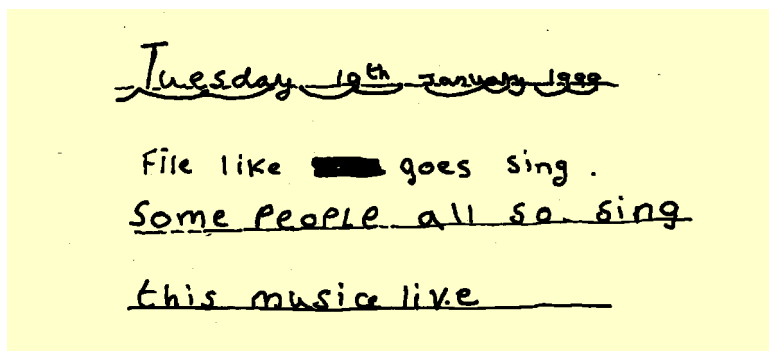 Tuesday 19th January 1999
File like goes sing.
Some people all so sing
this musice live